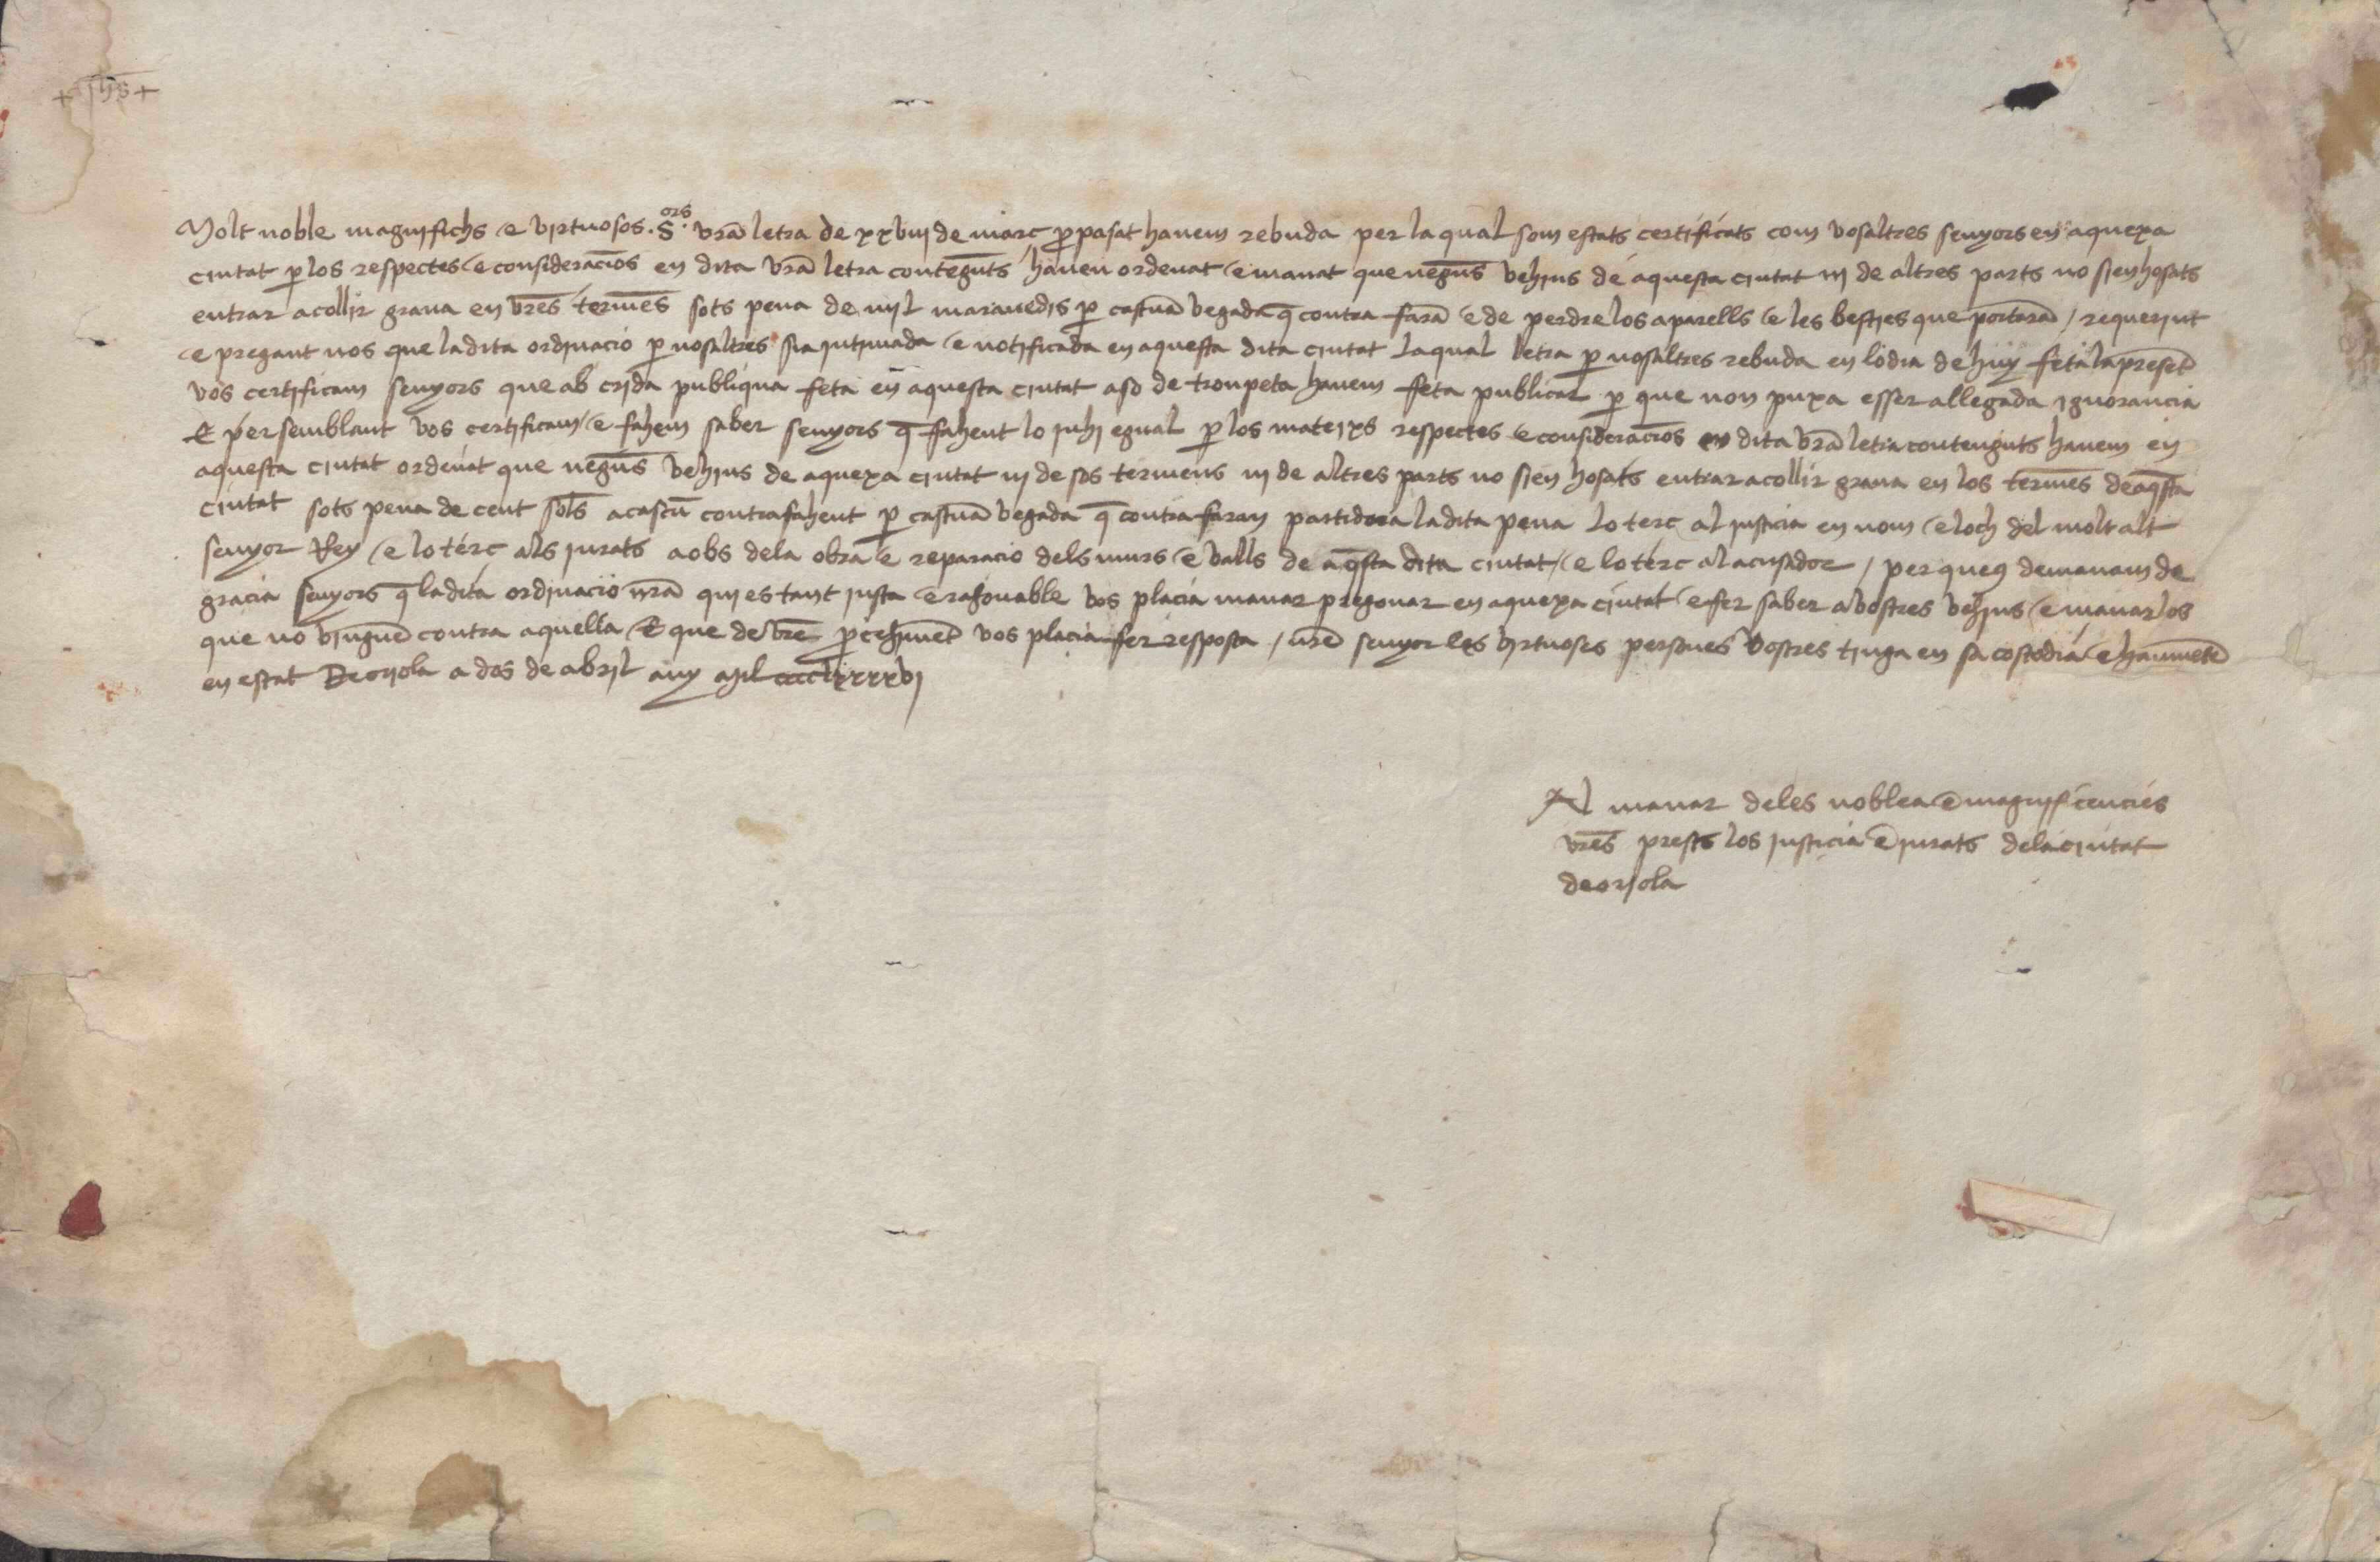 + Jhs +
Molt noble magnifichs e virtuosos .S.ors vrā letra de xxviij de març p̱ pasat havem rebuda per la qual som estats certificats com vosaltres senyors en aquexa
ciutat p̱ los respectes e consideraciōs en dita vrā letra contēguts haveu ordenat e manat que negūs vehins de aquesta ciutat ni de altres parts no sien hosats
entrar a collir grana en vrēs termēs sots pena de mil maravedis p̱ cascuā vegada q̄ contra farā e de perdre los aparells e les besties que portarā / requerint
e pregant nos que la dita ordinacio p̱ nosaltres sia intimada e notificada en aquesta dita ciutat la qual letra p̱ nosaltres rebuda en lo dia de huy feta la presēt
vos certificam senyors que ab crida publiqua feta en aquesta ciutat a so de tronpeta havem feta publicar p̱ que non puxa esser allegada ignorancia
E per semblant vos certificam / e fahem saber senyors q̄ fahent lo juhi egual p̱ los mateixs respectes e consideraciōs en dita vrā letra contenguts havem en
aquesta ciutat ordenat que negūs vehins de aquexa ciutat ni de sos termens ni de altres parts no sien hosats entrar a collir grana en los termēs de aq̄sta
ciutat sots pena de cent sols̄ a cascū contrafahent p̱ cascuā vegada q̄ contra faran partidora la dita pena lo terç al justicia en nom e loch del molt alt
senyor Rey / e lo terç als jurats a obs de la obra e reparacio dels murs e valls de aq̄sta dita ciutat / e lo terç al acusador / per queus demanam de
gracia senyors q̄ la dita ordinacio nrā qui es tant justa e rahonable vos placia manar p̱regonar en aquexa ciutat e fer saber a vostres vehins e manar los
que no vinguē contra aquella E que de vrē p̱cehimēt vos placia fer resposta / nrē senyor les virtuoses persones vostres tinga en sa costodia e
en estat De oriola a dos de abril any Mil cccclxxxxvj
Al manar de les noblea e magnificencies
vrēs prests los justicia e jurats de la ciutat
de oriola